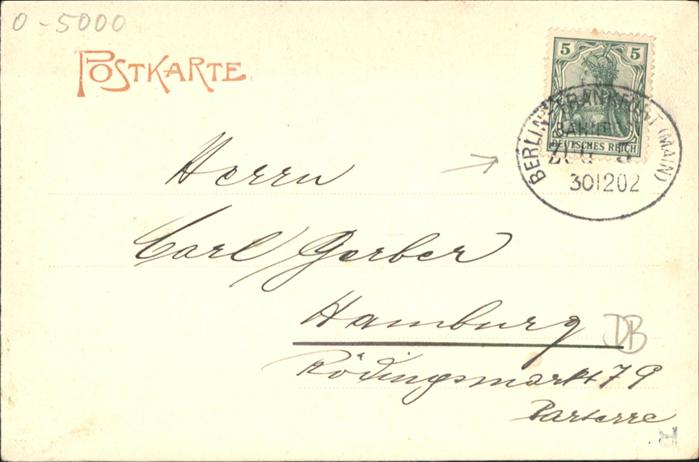 0-5000
POSTKARTE
5 5
DEUTSCHES REICH
BERLIN-FRANKFURT (MAIN)
BAHNPOST
ZUG
301202
Herrn
Carl Gerber
Hamburg
DB
Rödingsmarkt 79
Parterre